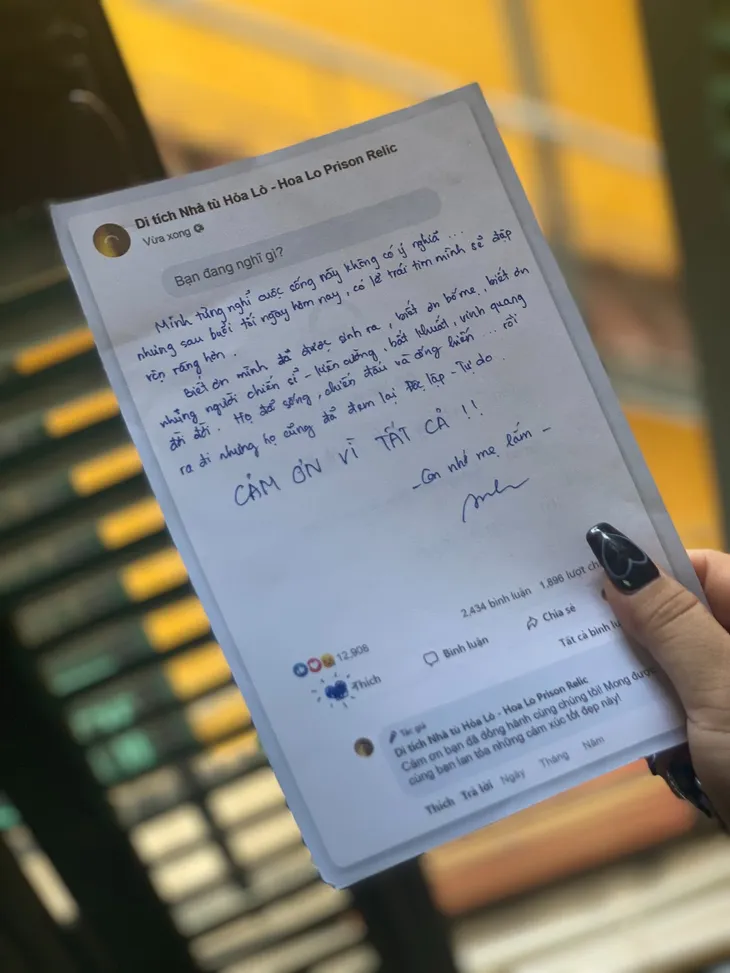 Di tích Nhà tù Hỏa Lò - Hoa Lo Prison Relic
Vừa xong
Bạn đang nghĩ gì?
Mình từng nghĩ cuộc sống này không có ý nghĩa ...
nhưng sau buổi tối ngày hôm nay, có lẽ trái tim mình sẽ đập
rộn ràng hơn.
Biết ơn mình đã được sinh ra, biết ơn bố mẹ, biết ơn
những người chiến sĩ - kiên cường, bất khuất, vinh quang
đời đời. Họ đã sống, chiến đấu và cống hiến ... rồi
ra đi nhưng họ cũng đã đem lại Độc lập - Tự do.
CẢM ƠN VÌ TẤT CẢ !!
- Con nhớ mẹ lắm -
2,434 bình luận 1,896 lượt
12,908
Thích
Bình luận
Chia sẻ
Tất cả bình
Tác giả
Di tích Nhà tù Hỏa Lò - Hoa Lo Prison Relic
Cảm ơn bạn đã đồng hành cùng chúng tôi! Mong được
cùng bạn lan tỏa những cảm xúc tốt đẹp này!
Thích Trả lời Ngày Tháng Năm